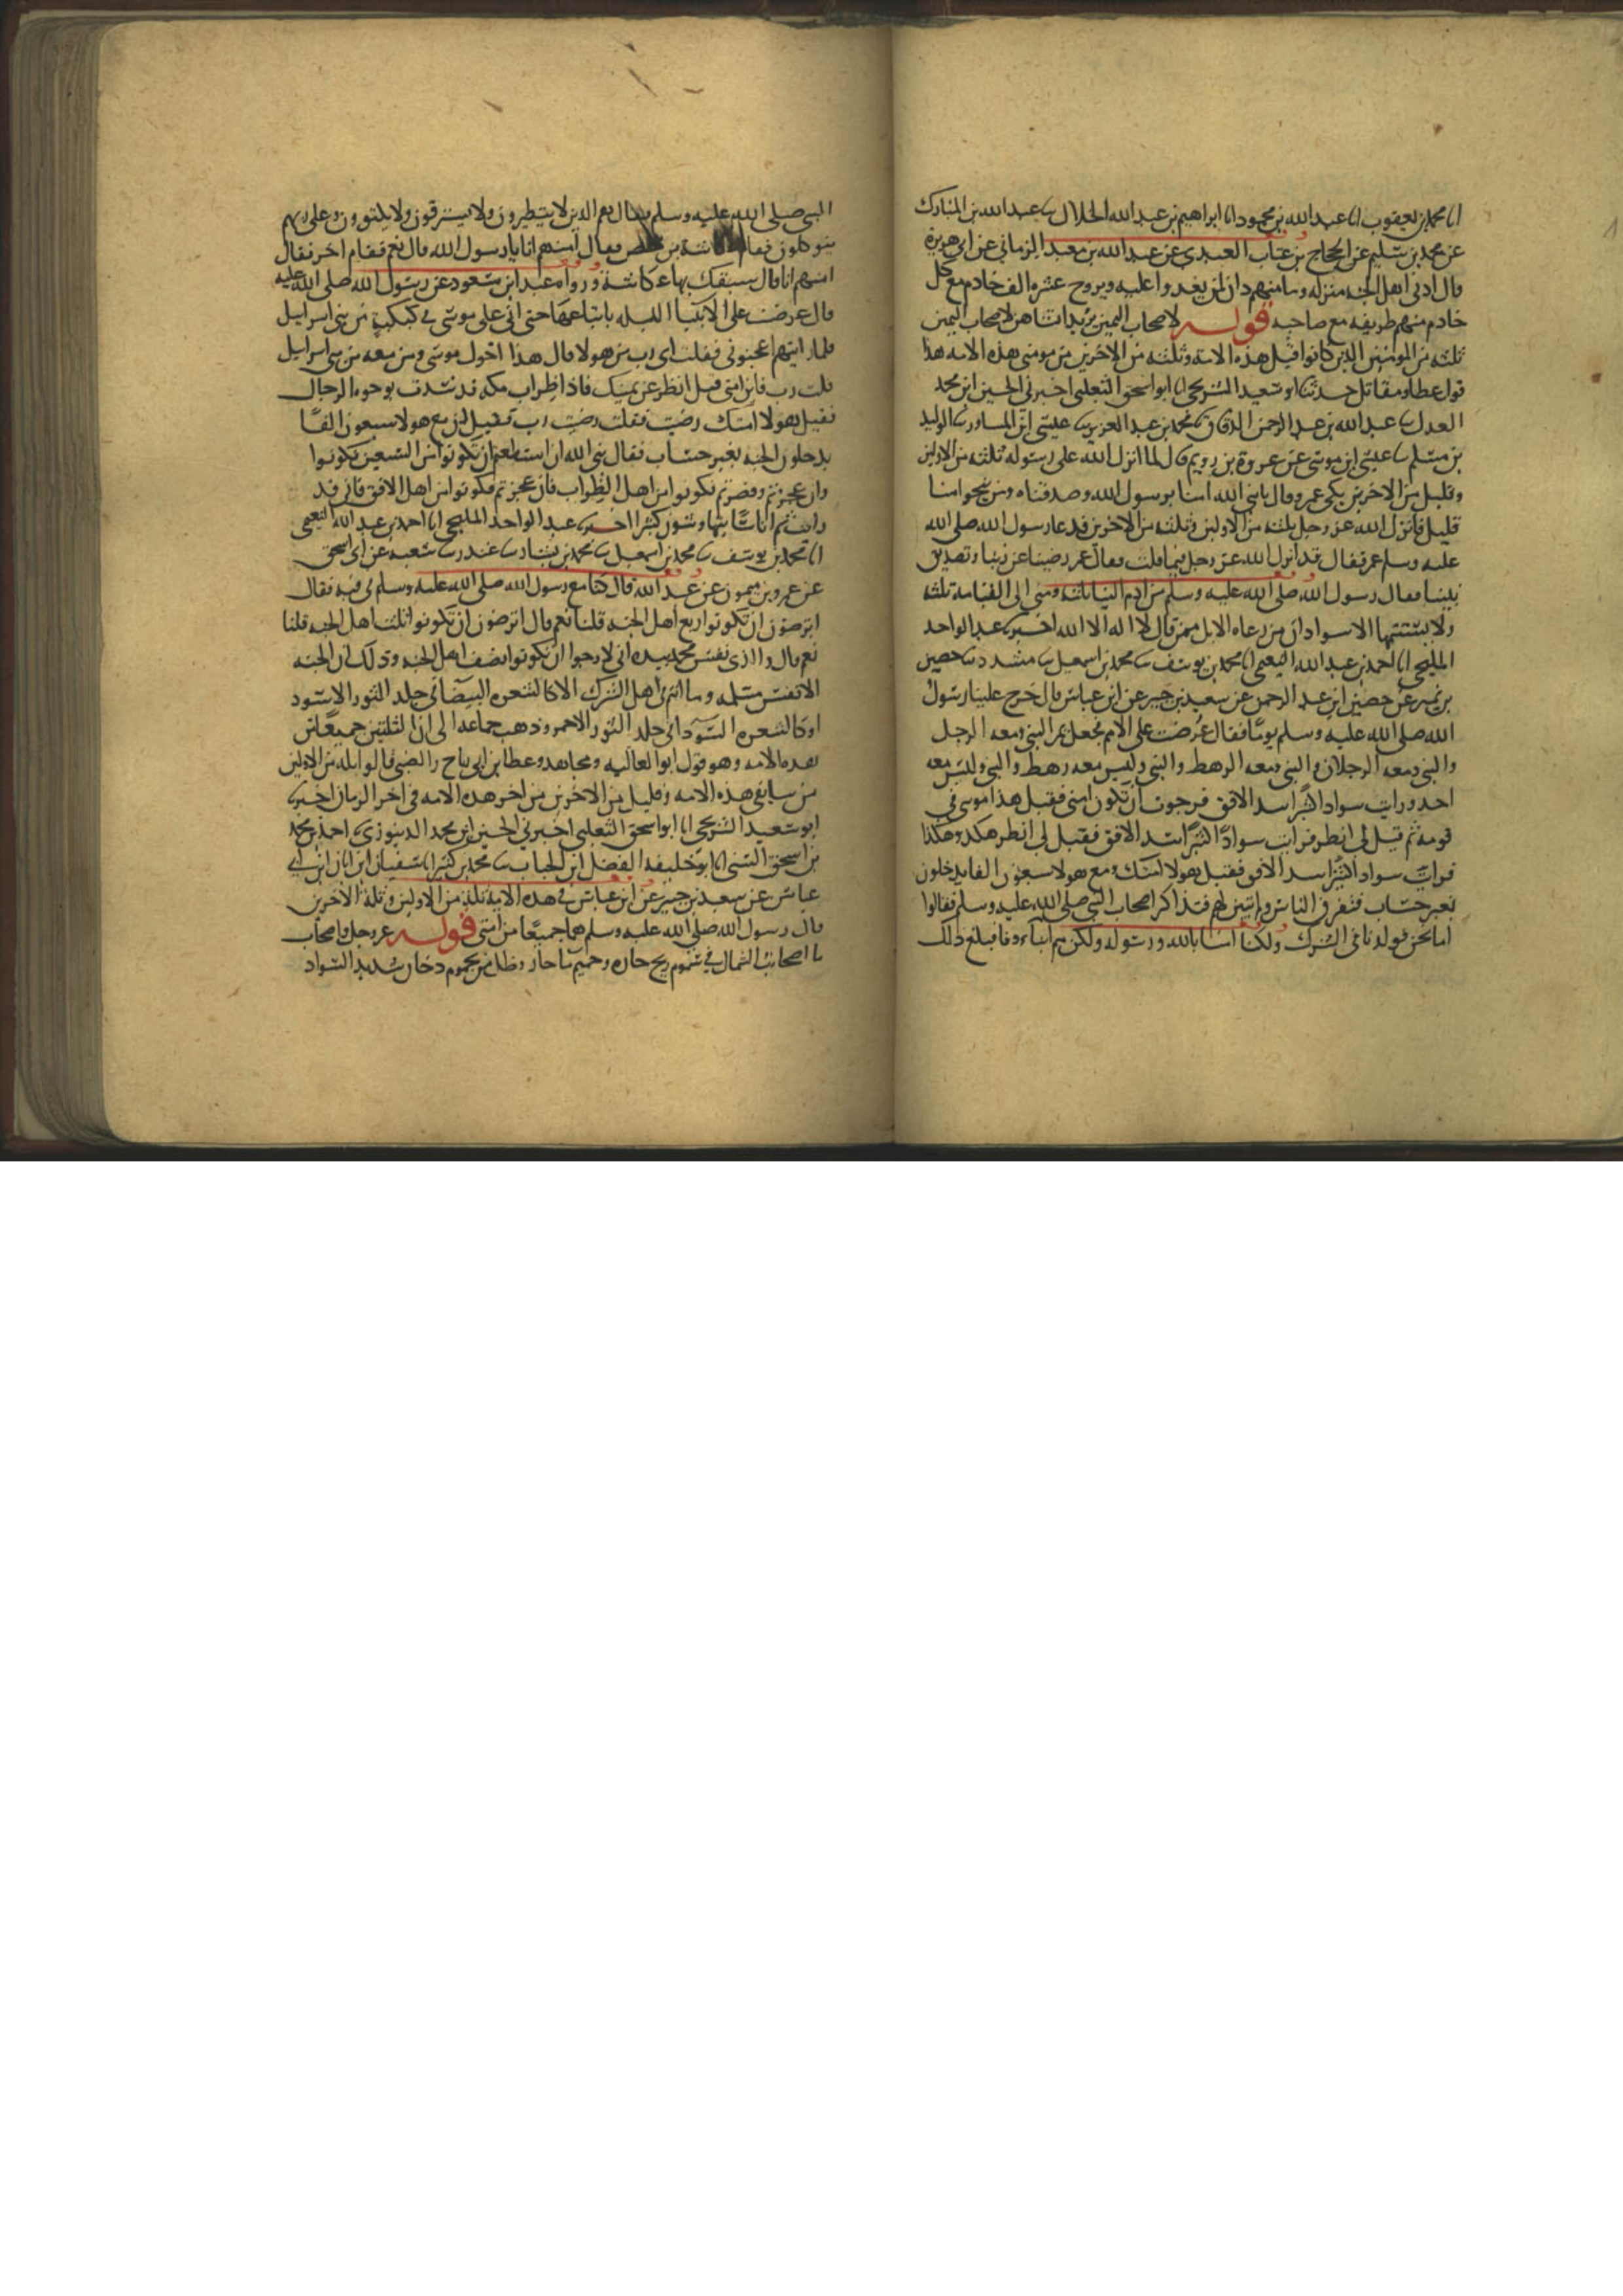 انا محمد بن يعقوب انا عبد الله بن محمود انا ابراهيم بن عبد الله الخلال سا عبد الله بن المبارك
عن محمد بن سليم عن الحجاج بن عتاب العبدي عن عبد الله بن معبد الزماني عن ابي هريرة
قال ادنى اهل الجنه منزله وما منهم دان لمن يغدوا عليه ويروح عشره الف خادم مع كل
خادم منهم طريفه مع صاحبه قوله لاصحاب اليمين يريد انشاهن لاصحاب اليمين
ثلثه من المومنين الذين كانوا قبل هذه الامة وثلثه من الاخرين من مومني هذه الامه هذا
قول عطا ومقاتل حدثنا ابو سعيد الشريحي انا ابو اسحق الثعلبي اخبرني الحسين ابن محمد
العدل سا عبد الله بن عبد الرحمن الدقاق سا محمد بن عبد العزيز سا عيسى ابن المساور سا الوليد
بن مسلم سا عيسى ابن موسى عن عروة بن رويم قال لما انزل الله على رسوله ثلثه من الاولين
وقليل من الاخرين بكى عمر وقال يا نبي الله امنا برسول الله وصدقناه ومن ينجوا منا
قليل فانزل الله عز وجل ثلثه من الاولين وثلثه من الاخرين فدعا رسول الله صلى الله
عليه وسلم عمر فقال قد انزل الله عز وجل فيما قلت فقال عمر رضينا عن ربنا وتصديق
نبينا فقال رسول الله صلى الله عليه وسلم من ادم الينا ثلثه ومني الى القيامة ثلثه
ولا يستتمها الا سوادان من رعاه الابل ممن قال لا اله الا الله اخبرنا عبد الواحد
المليحي انا احمد بن عبد الله النعيمي انا محمد بن يوسف سا محمد بن اسمعيل سا مسدد سا حصين
بن نمير عن حصين ابن عبد الرحمن عن سعيد بن جبير عن ابن عباس قال خرج علينا رسول
الله صلى الله عليه وسلم يوما فقال عرضت علي الامم فجعل يمر النبي ومعه الرجل
والنبي ومعه الرجلان والنبي ومعه الرهط والنبي وليس معه رهط والنبي وليس معه
احد ورايت سوادا كثيرا سد الافق فرجوت ان تكون امتي فقيل هذا موسى في
قومه ثم قيل لي انظر فرايت سوادا كثيرا سد الافق فقيل لي انظر هكذا وهكذا
فرايت سوادا كثيرا سد الافق فقيل هولا امتك ومع هولا سبعون الفا يدخلون
بغير حساب فتفرق الناس ولم يبين لهم فتذاكر اصحاب النبي صلى الله عليه وسلم فقالوا
اما نحن فولدنا في الشرك ولكنا امنا بالله ورسوله ولكن هم ابناءونا فبلغ ذلك
النبي صلى الله عليه وسلم فقال هم الذين لا يتطيرون ولا يسترقون ولا يكتوون وعلى ربهم
يتوكلون فقام عكاشة بن محصن فقال امنهم انا يا رسول الله قال نعم فقام اخر فقال
امنهم انا قال سبقك بها عكاشة ورواه عبد ابن مسعود عن رسول الله صلى الله عليه
قال عرضت على الانبيا الليله باتباعها حتى اتى على موسى في كبكبة من بني اسرايل
فلما رايتهم اعجبوني فقلت اي رب من هولا قال هذا اخوك موسى ومن معه من بني اسرايل
قلت رب فاين امتي قيل انظر عن يمينك فاذا ظراب مكه قد سدت بوجوه الرجال
فقيل هولا امتك رضيت فقلت رضيت رب فقيل لي مع هولا سبعون الفا
يدخلون الجنه بغير حساب فقال نبي الله ان استطعتم ان تكونوا من السبعين فكونوا
وان عجزتم وقصرتم فكونوا من اهل الظراب فان عجزتم فكونوا من اهل الافق فاني قد
رايت ثم اناسا يتهاوشون كثيرا اخبرنا عبد الواحد المليحي انا احمد بن عبد الله النعيمي
انا محمد بن يوسف سا محمد بن اسمعيل سا محمد بن بشار سا غندر سا شعبه عن ابي اسحق
عن عمرو بن ميمون عن عبد الله قال كنا مع رسول الله صلى الله عليه وسلم في قبه فقال
اترضون ان تكونوا ربع اهل الجنه قلنا نعم قال اترضون ان تكونوا ثلث اهل الجنه قلنا
نعم قال والذي نفس محمد بيده اني لارجوا ان تكونوا نصف اهل الجنه وذلك ان الجنه
الا نفس مسلمه وما انتم في اهل الشرك الا كالشعره البيضا في جلد الثور الاسود
او كالشعره السودا في جلد الثور الاحمر وذهب جماعه الى ان الثلتين جميعا من
هذه الامه وهو قول ابو العاليه ومجاهد وعطا بن ابي رباح والضحاك قالوا ثله من الاولين
من سابقي هذه الامه وقليل من الاخرين من اخر هذه الامه في اخر الزمان اخبرنا
ابو سعيد الشريحي انا ابو اسحق الثعلبي اخبرني الحسين ابن محمد الدينوري احمد بن محمد
بن اسحق السني انا ابو خليفه الفضل ابن الحباب سا محمد بن كثير انا سفيان ابن ابان ابن ابي
عياش عن سعيد بن جبير عن ابن عباس في هذه الاية ثلة من الاولين وثلة الاخرين
قال رسول الله صلى الله عليه وسلم هما جميعا من امتي قوله عز وجل واصحاب
ما اصحاب الشمال في سموم ريح حاره وحميم ما حار وظل من يحموم دخان شديد السواد